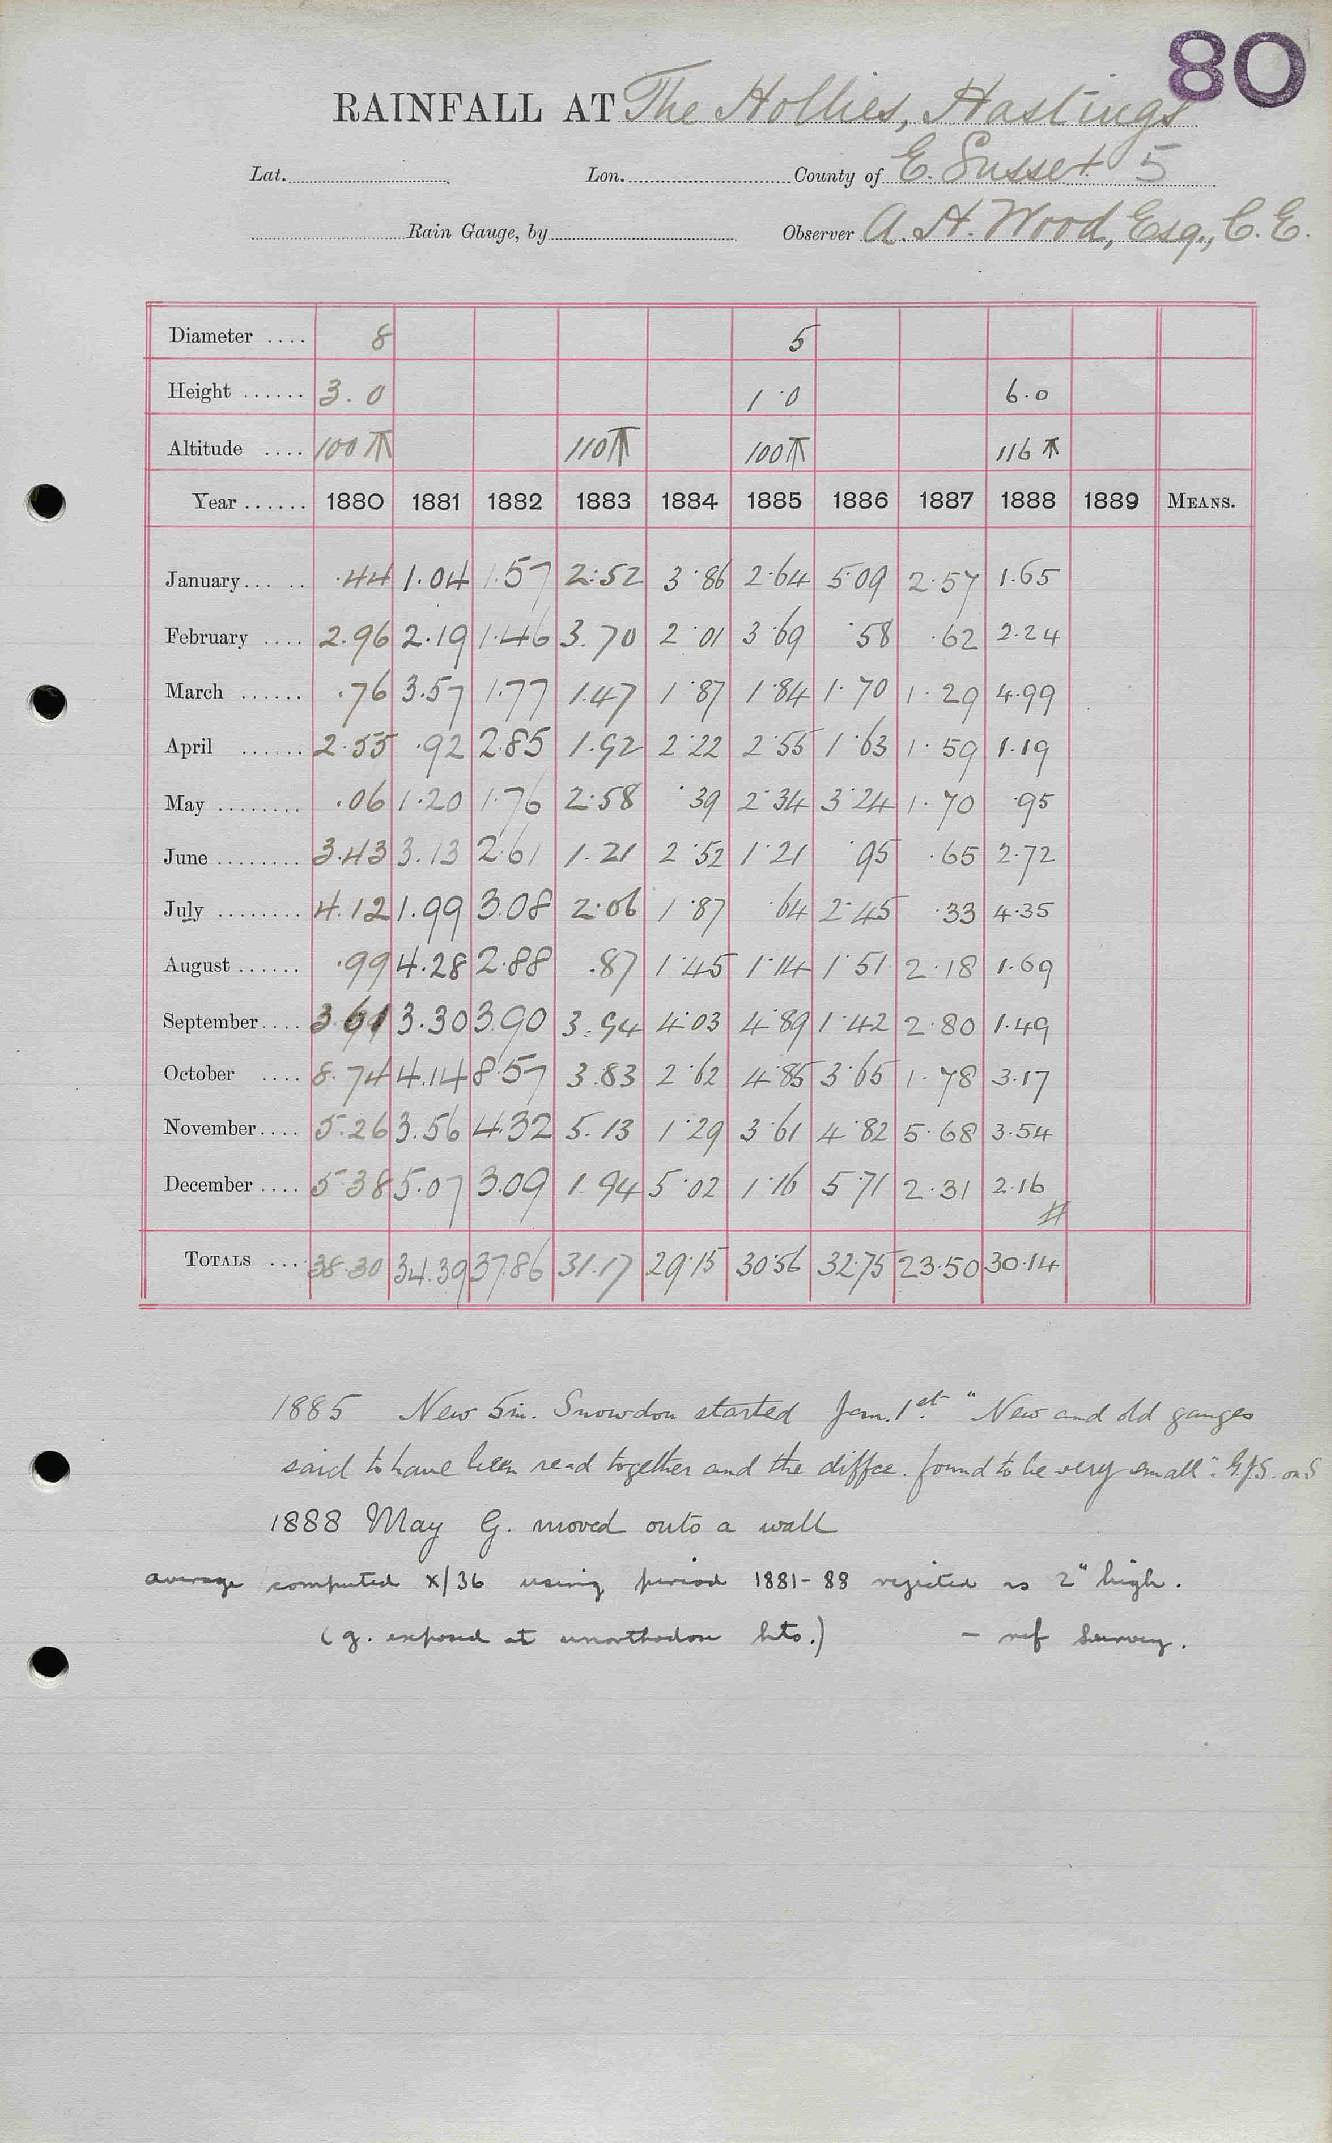 80
RAINFALL AT The Hollies, Hastings
Lat. Lon. County of E. Sussex 5
Rain Gauge, by Observer A. H. Wood, Esq., C.E.
Diameter .... 8 5
Height ...... 3.0 1.0 6.0
Altitude .... 100 110 100 116
Year ...... 1880 1881 1882 1883 1884 1885 1886 1887 1888 1889 MEANS.
January .... .44 1.04 1.57 2.52 3.86 2.64 5.09 2.57 1.65
February .... 2.96 2.19 1.46 3.70 2.01 3.69 .58 .62 2.24
March ...... .76 3.57 1.77 1.47 1.87 1.84 1.70 1.29 4.99
April ...... 2.55 .92 2.85 1.92 2.22 2.55 1.63 1.59 1.19
May ........ .06 1.20 1.76 2.58 .39 2.34 3.24 1.70 .95
June ........ 3.43 3.13 2.61 1.21 2.52 1.21 .95 .65 2.72
July ........ 4.12 1.99 3.08 2.06 1.87 .64 2.45 .33 4.35
August ...... .99 4.28 2.88 .87 1.45 1.14 1.51 2.18 1.69
September .... 3.61 3.30 3.90 3.94 4.03 4.89 1.42 2.80 1.49
October .... 8.74 4.14 8.57 3.83 2.62 4.85 3.65 1.78 3.17
November .... 5.26 3.56 4.32 5.13 1.29 3.61 4.82 5.68 3.54
December .... 5.38 5.07 3.09 1.94 5.02 1.16 5.71 2.31 2.16
#
TOTALS .... 38.30 34.39 37.86 31.17 29.15 30.56 32.75 23.50 30.14
1885 New 5in. Snowdon started Jan. 1st. "New and old gauges
said to have been read together and the diffce. found to be very small".
1888 May G. moved onto a wall
average computed x/36 using period 1881-88 rejected as 2" high.
(g. exposed at unorthodox hts.) - ref Survey.